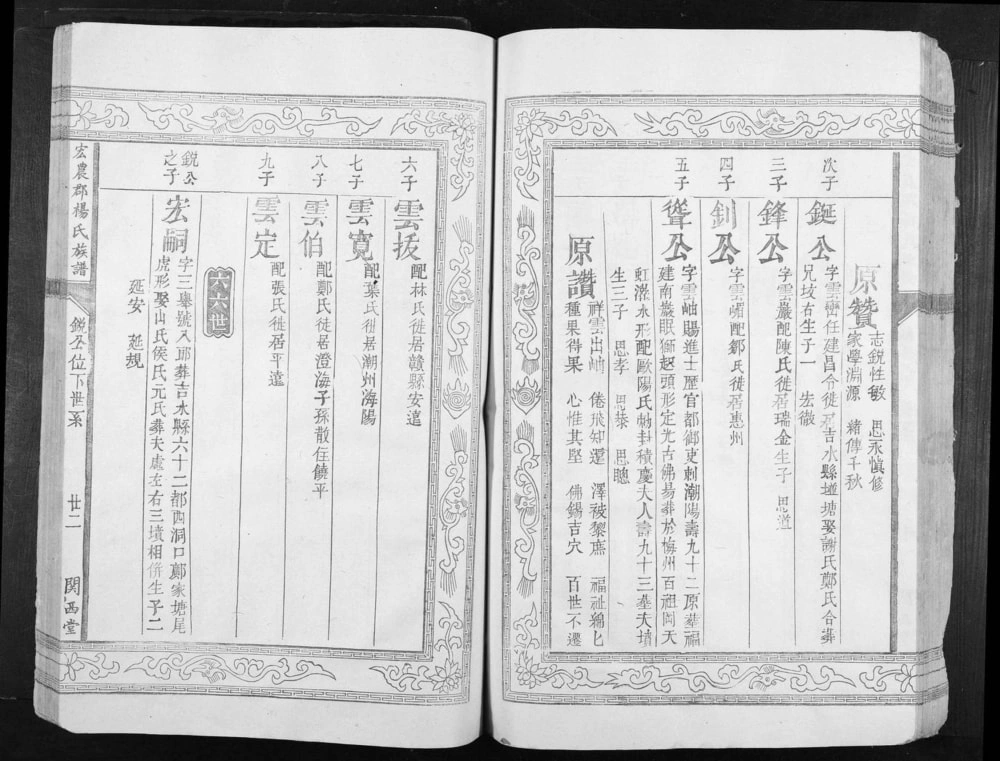 原贊
志銳性敏 思永慎修
家學淵源 緒傳千秋
次子
鋋公
字雲巒任建昌令徙居吉水縣塘娶謝氏鄭氏合葬
兄坟右生子一 宏徽
三子
鋒公
字雲巖配陳氏徙居瑞金生子 思道
四子
釗公
字雲嵋配鄒氏徙居惠州
五子
聳公
字雲岫賜進士歷官都御史刺潮陽壽九十二原葬福
建南巖眠獅頭形定光古佛易葬於梅州百祖岡天
虹瀠水形配歐陽氏勅封積慶夫人壽九十三塟夫墳
生三子 思孝 思恭 思聰
原讚
祥雲出岫 倦飛知還 澤被黎庶 福祉
種果得果 心惟其堅 佛錫吉穴 百世不遷
六子
雲拔
配林氏徙居贛縣安遠
七子
雲寬
配葉氏徙居潮州海陽
八子
雲伯
配鄭氏徒居澄海子孫散住饒平
九子
雲定
配張氏徙居平遠
六六世
銳公
之子
宏嗣
字三舉號入耶葬吉水縣六十二都西洞口鄭家塘尾
虎形娶山氏侯氏元氏葬夫處左右三墳相併生子二
延安 延覬
宏農郡楊氏族譜
銳公位下世系
廿二
関西堂